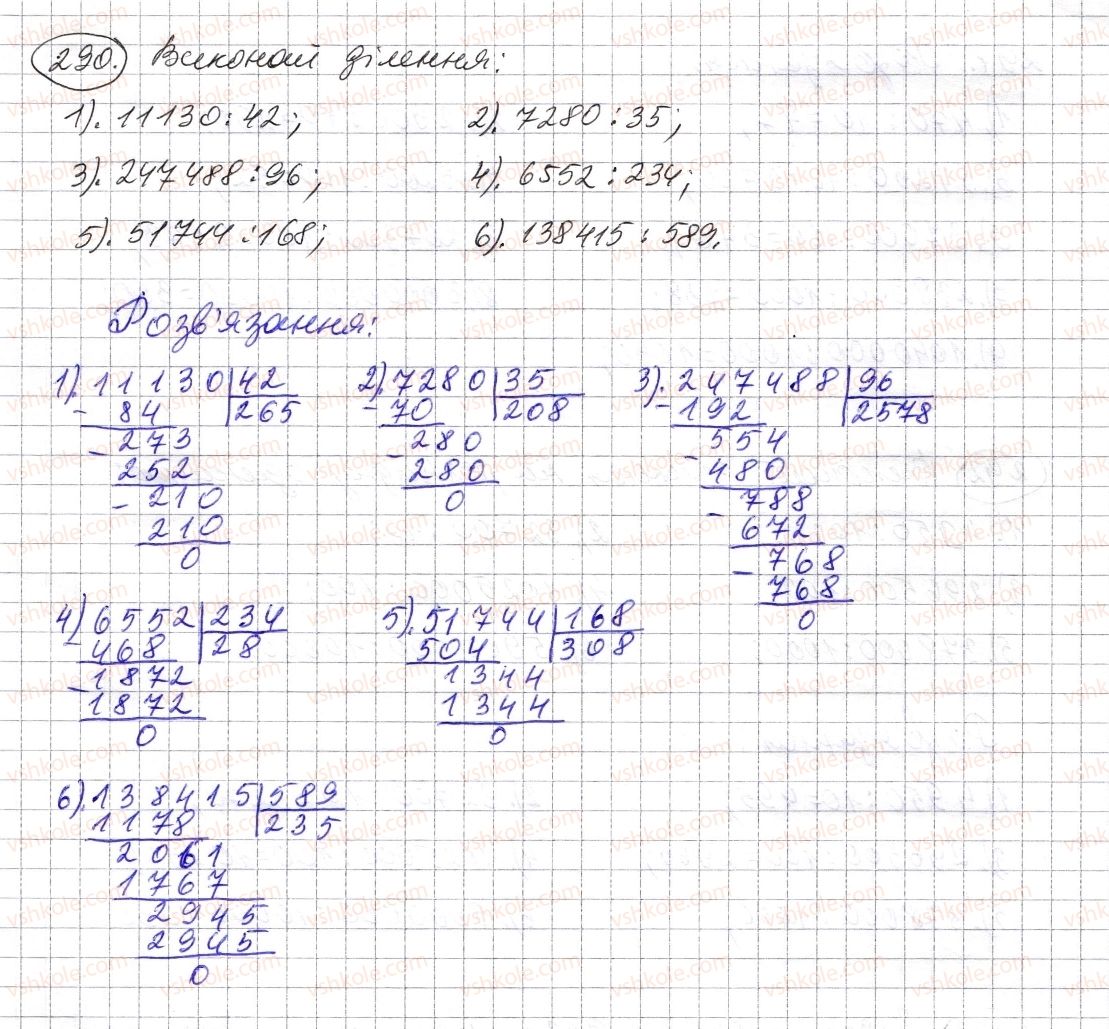 290. Виконай ділення:
1). 11130:42; 2). 7280:35;
3). 247488:96; 4). 6552:234;
5). 51744:168; 6). 138415:589.
Розв'язання:
1). 11130 42
- 84 265
- 273
252
- 210
210
0
2). 7280 35
- 70 208
- 280
280
0
3). 247488 96
- 192 2578
- 554
480
- 788
672
- 768
768
0
4) 6552 234
- 468 28
- 1872
1872
0
5). 51744 168
504 308
1344
1344
0
6). 138415 589
1178 235
2061
1767
2945
2945
0
vshkole.com